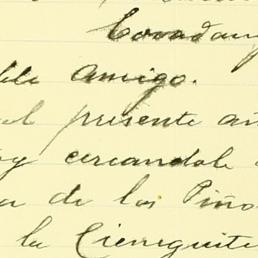 Covadong
ble amigo.
el presente añ
y cercandole
a de los Piño
la Cieneguite